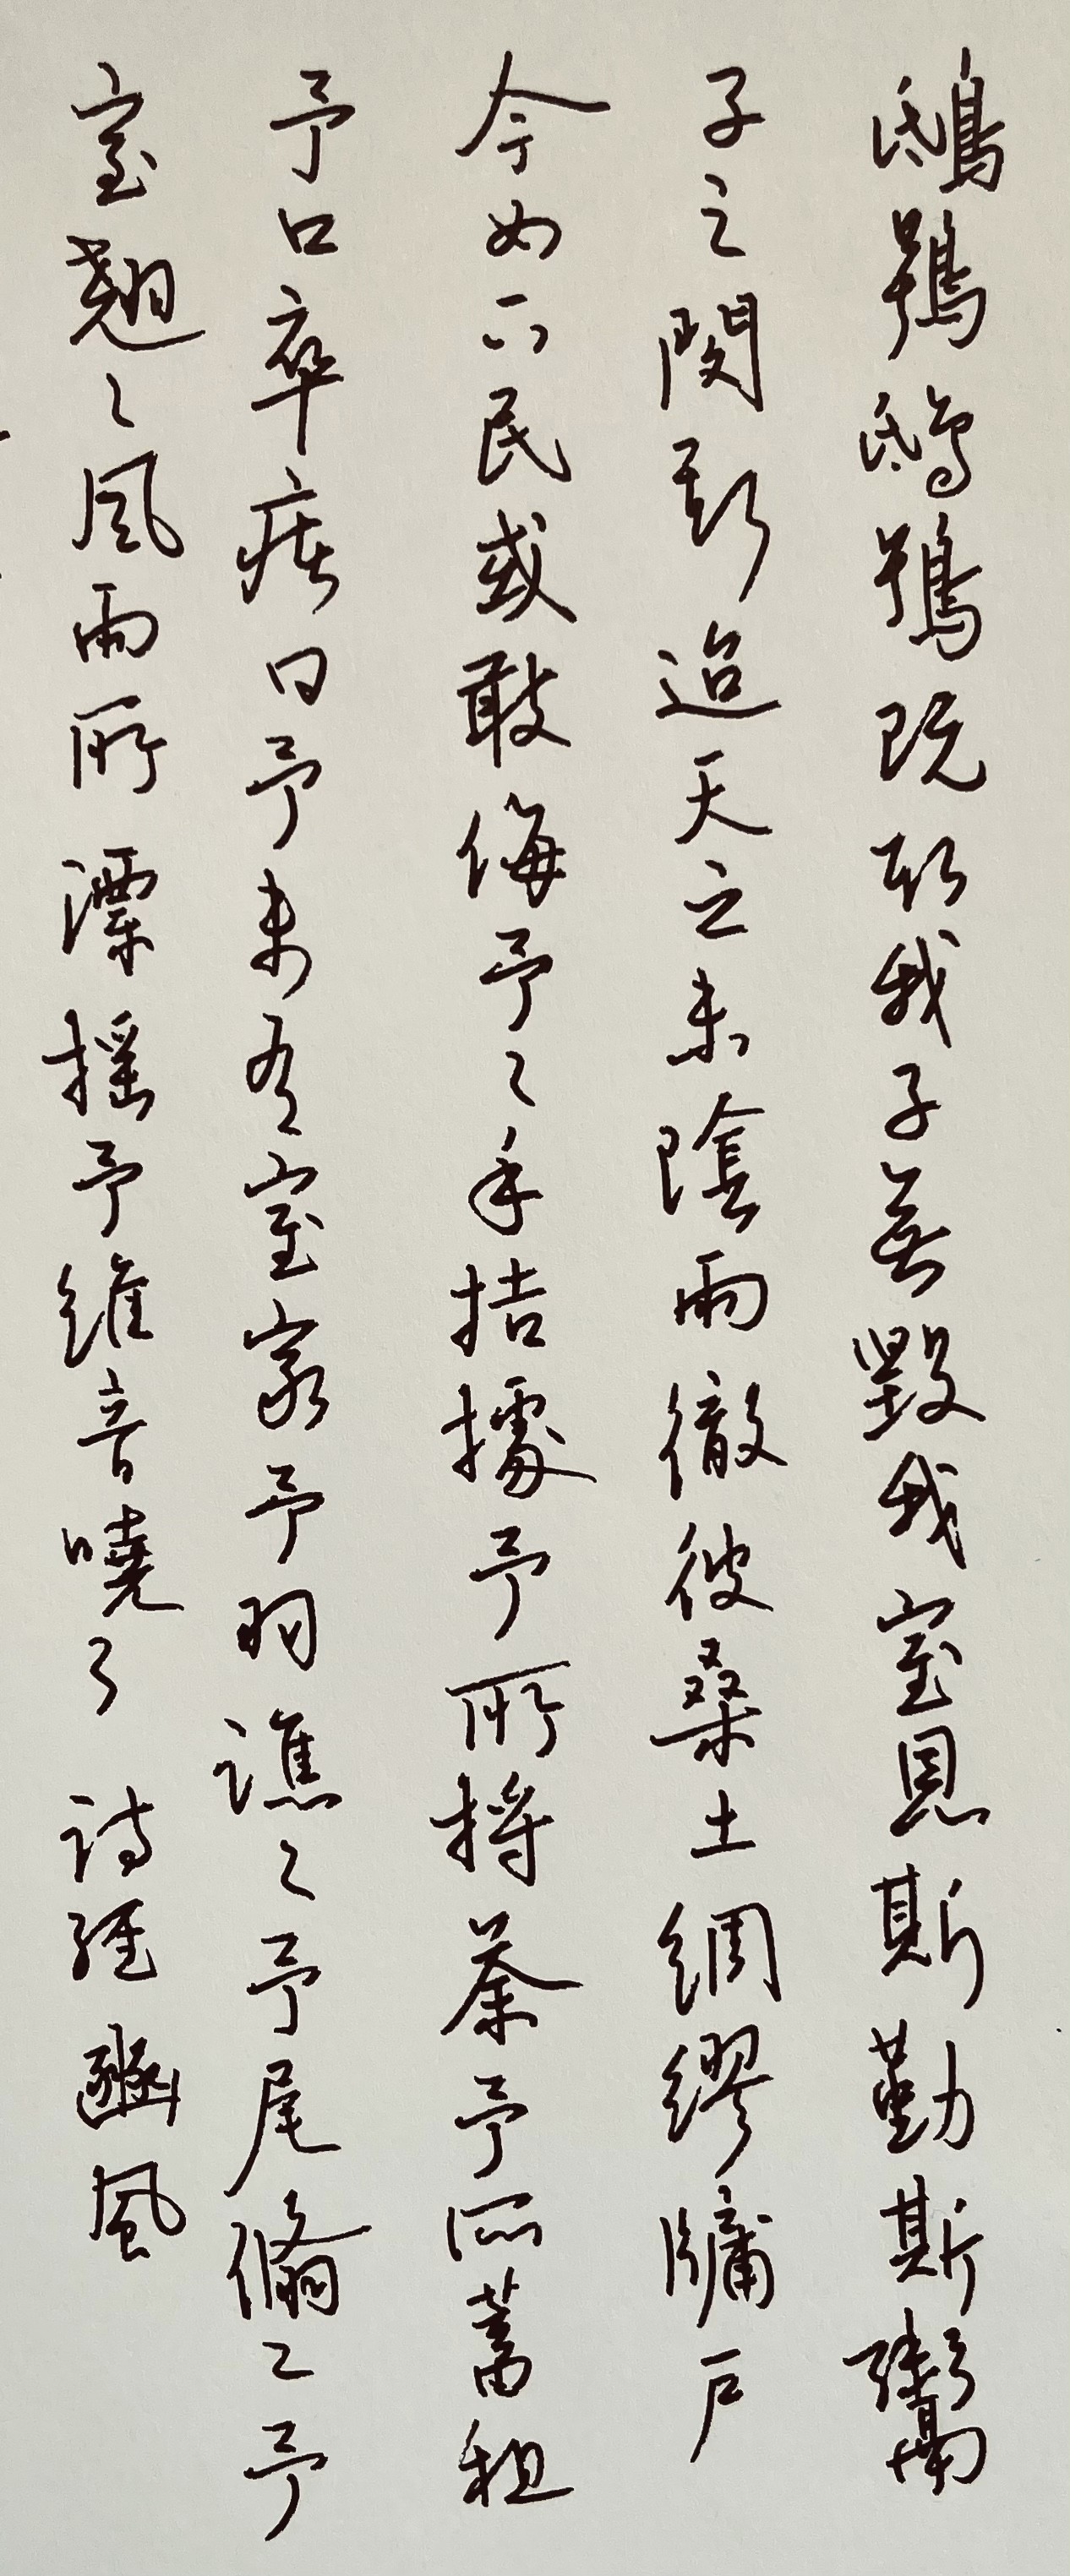 鴟鴞鴟鴞既取我子無毀我室恩斯勤斯鬻
子之閔斯迨天之未陰雨徹彼桑土綢繆牖戶
今女下民或敢侮予々手拮據予所捋荼予所蓄租
予口卒瘏曰予未有室家予羽譙々予尾翛々予
室翹々風雨所漂搖予維音嘵々 詩經豳風